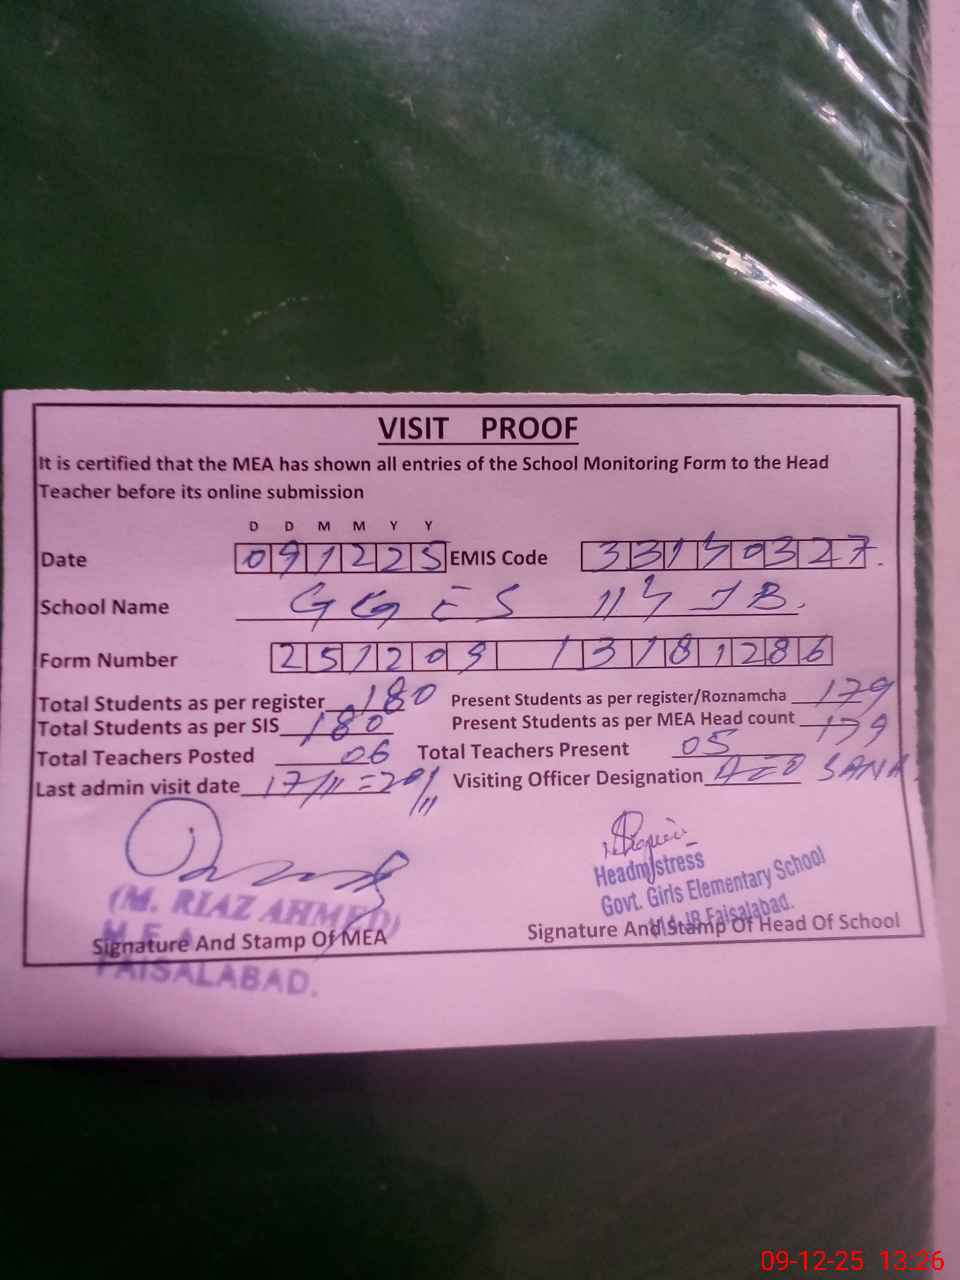 VISIT PROOF
It is certified that the MEA has shown all entries of the School Monitoring Form to the Head
Teacher before its online submission
D D M M Y Y
Date 091225 EMIS Code 33130327
School Name GGES 113 JB.
Form Number 251209 13181286
Total Students as per register 180 Present Students as per register/Roznamcha 179
Total Students as per SIS 180 Present Students as per MEA Head count 179
Total Teachers Posted 06 Total Teachers Present 05
Last admin visit date 17/11 Visiting Officer Designation AEO SANA
(M. RIAZ AHMED)
M.E.A
FAISALABAD.
Signature And Stamp Of MEA
Headmistress
Govt. Girls Elementary School
JB Faisalabad.
Signature And Stamp Of Head Of School
09-12-25 13:26